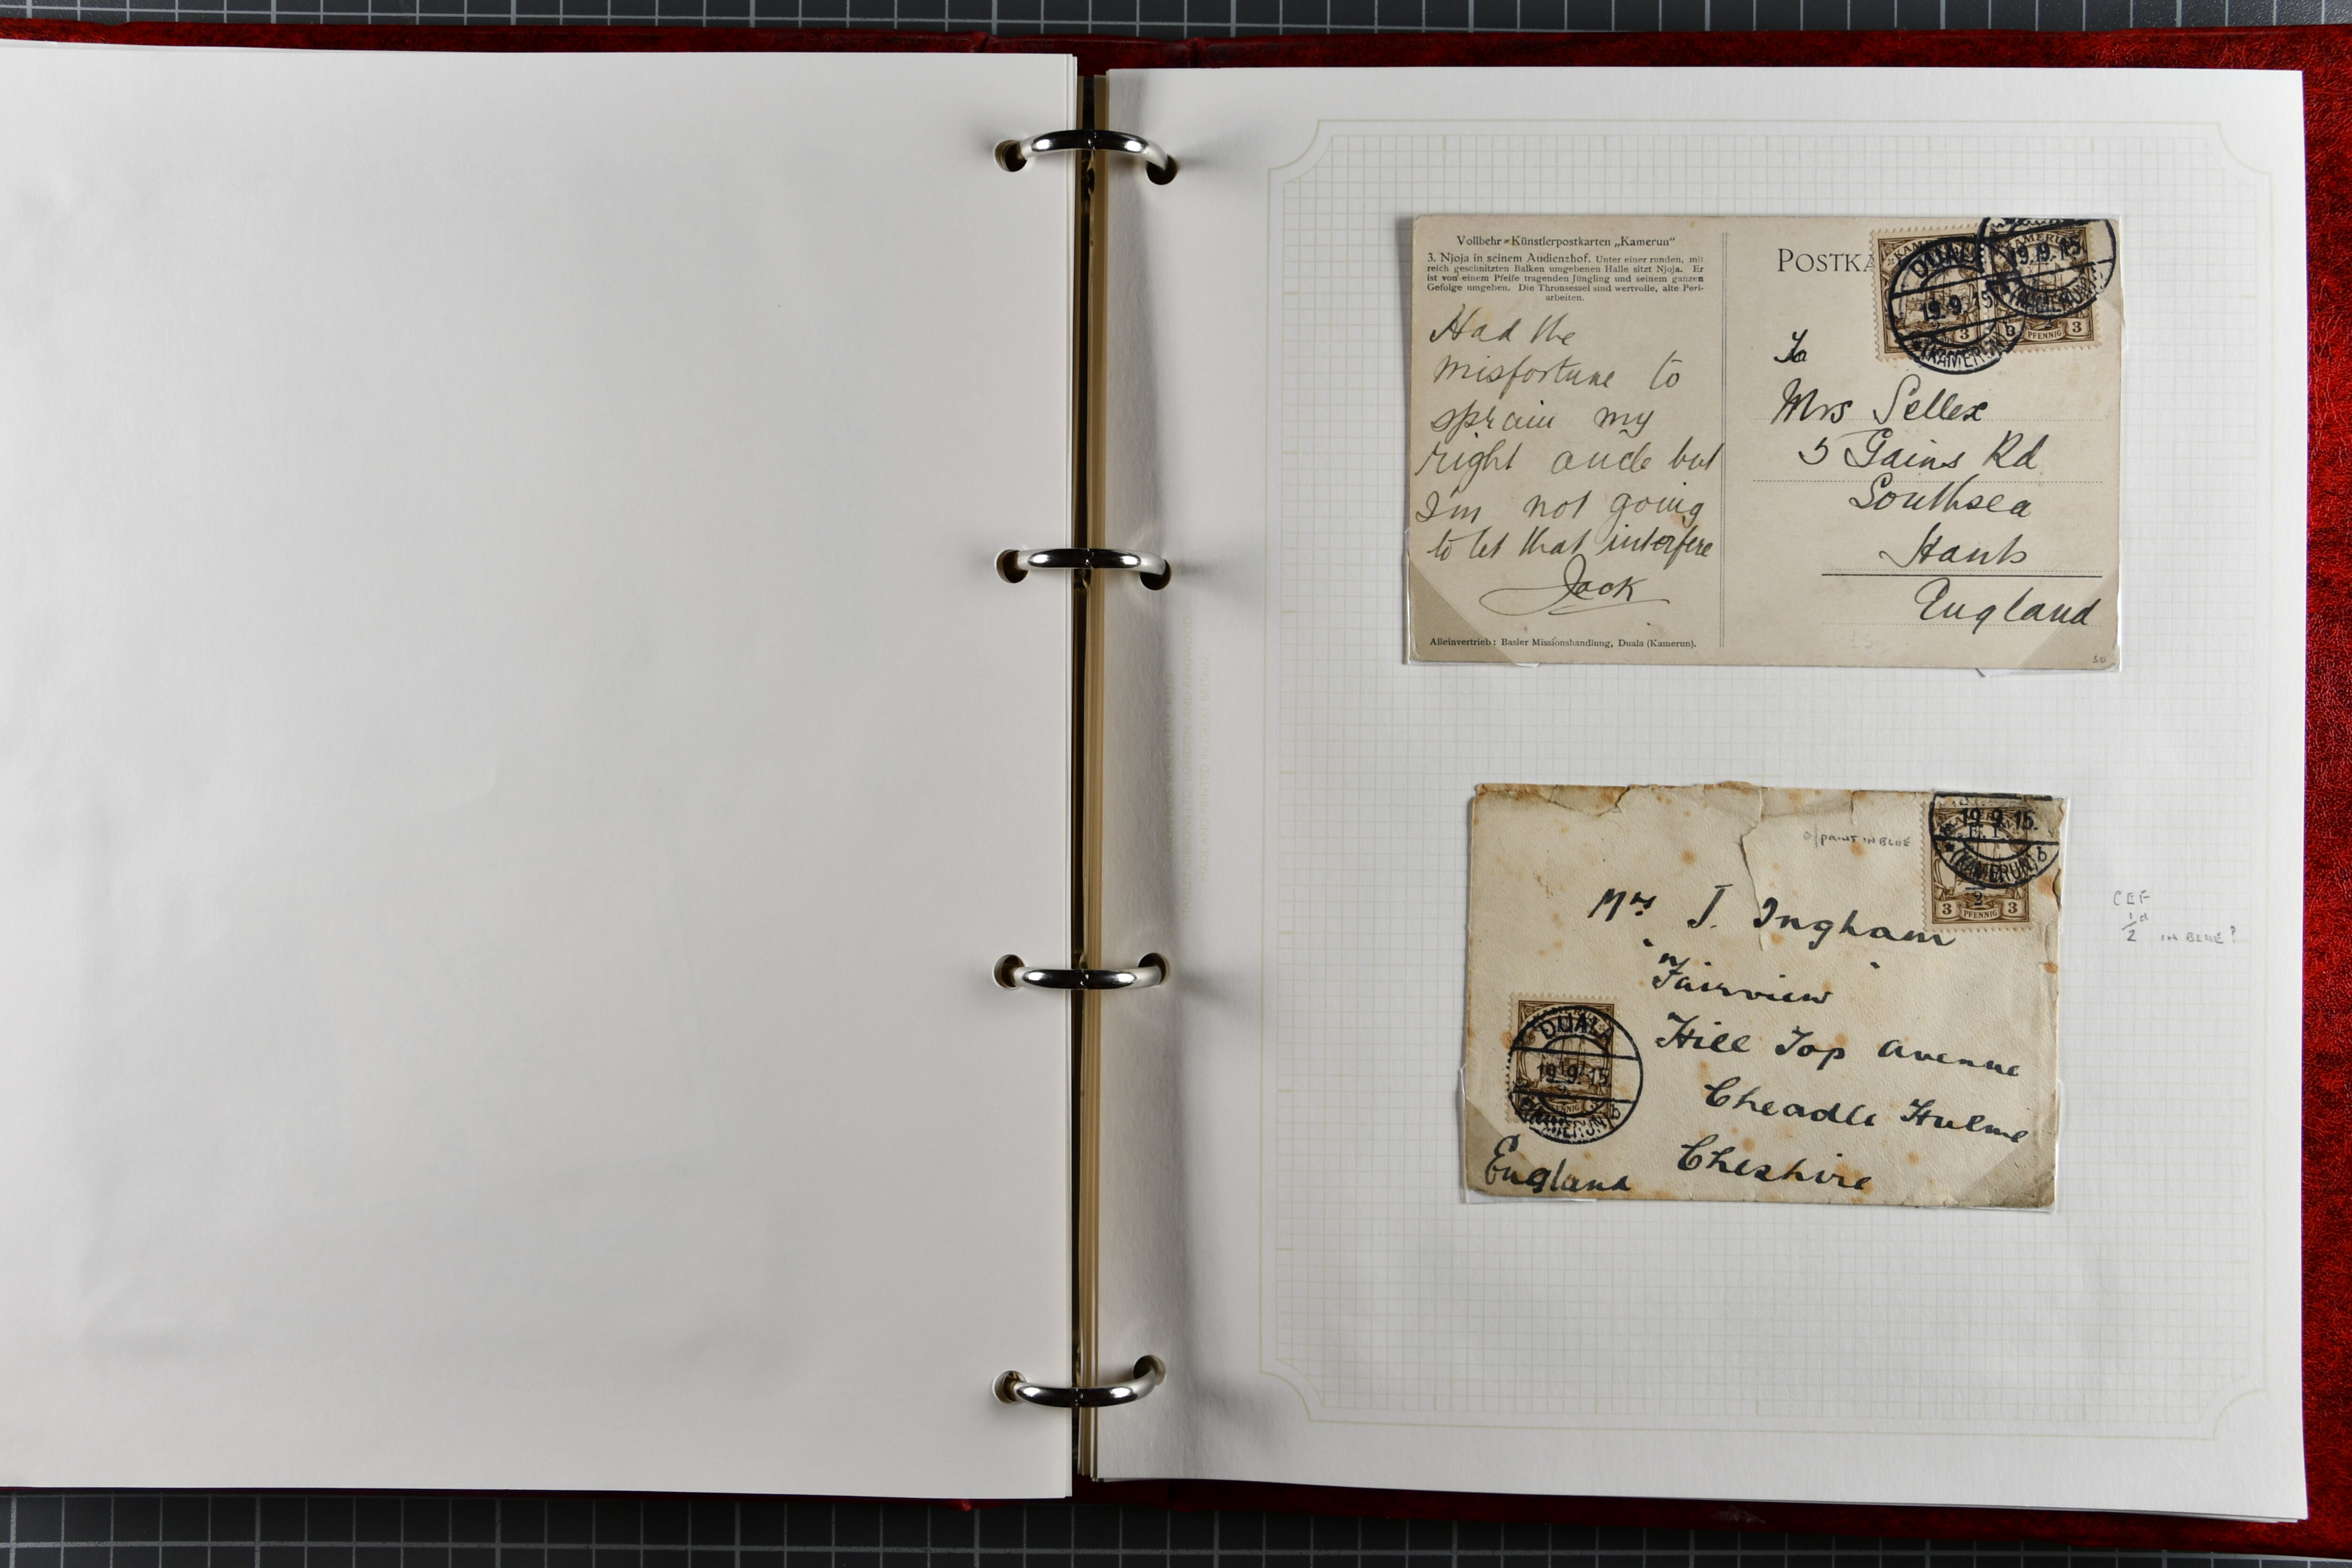 Vollbehr-Künstlerpostkarten „Kamerun"
3. Njoja in seinem Audienzhof. Unter einer runden, mit
reich geschnitzten Balken umgebenen Halle sitzt Njoja. Er
ist von einem Pfeife tragenden Jüngling und seinem ganzen
Gefolge umgeben. Die Thronsessel sind wertvolle, alte Perl-
arbeiten.
Had the
misfortune to
sprain my
right ancle but
I'm not going
to let that interfere
Jack
Alleinvertrieb: Basler Missionshandlung, Duala (Kamerun).
POSTKA
KAMERUN
DUALA
19.9.15
(KAMERUN) b
3
KAMERUN
19.9.15
(KAMERUN)
PFENNIG 3
To
Mrs Sellex
5 Gains Rd
Southsea
Hants
England
O/PRINT IN BLUE
19.9.15.
(KAMERUN) b
3 PFENNIG 3
Mrs J. Ingham
"Fairview"
Hill Top Avenue
Cheadle Hulme
Cheshire
England
DUALA
19.9.15.
(KAMERUN) b
CEF
1/2 d IN BLUE?